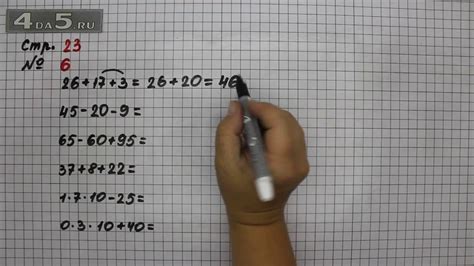 4DA5.RU
Стр. 23
№ 6
26+17+3=26+20=46
45-20-9=
65-60+95=
37+8+22=
1·7·10-25=
0·3·10+40=